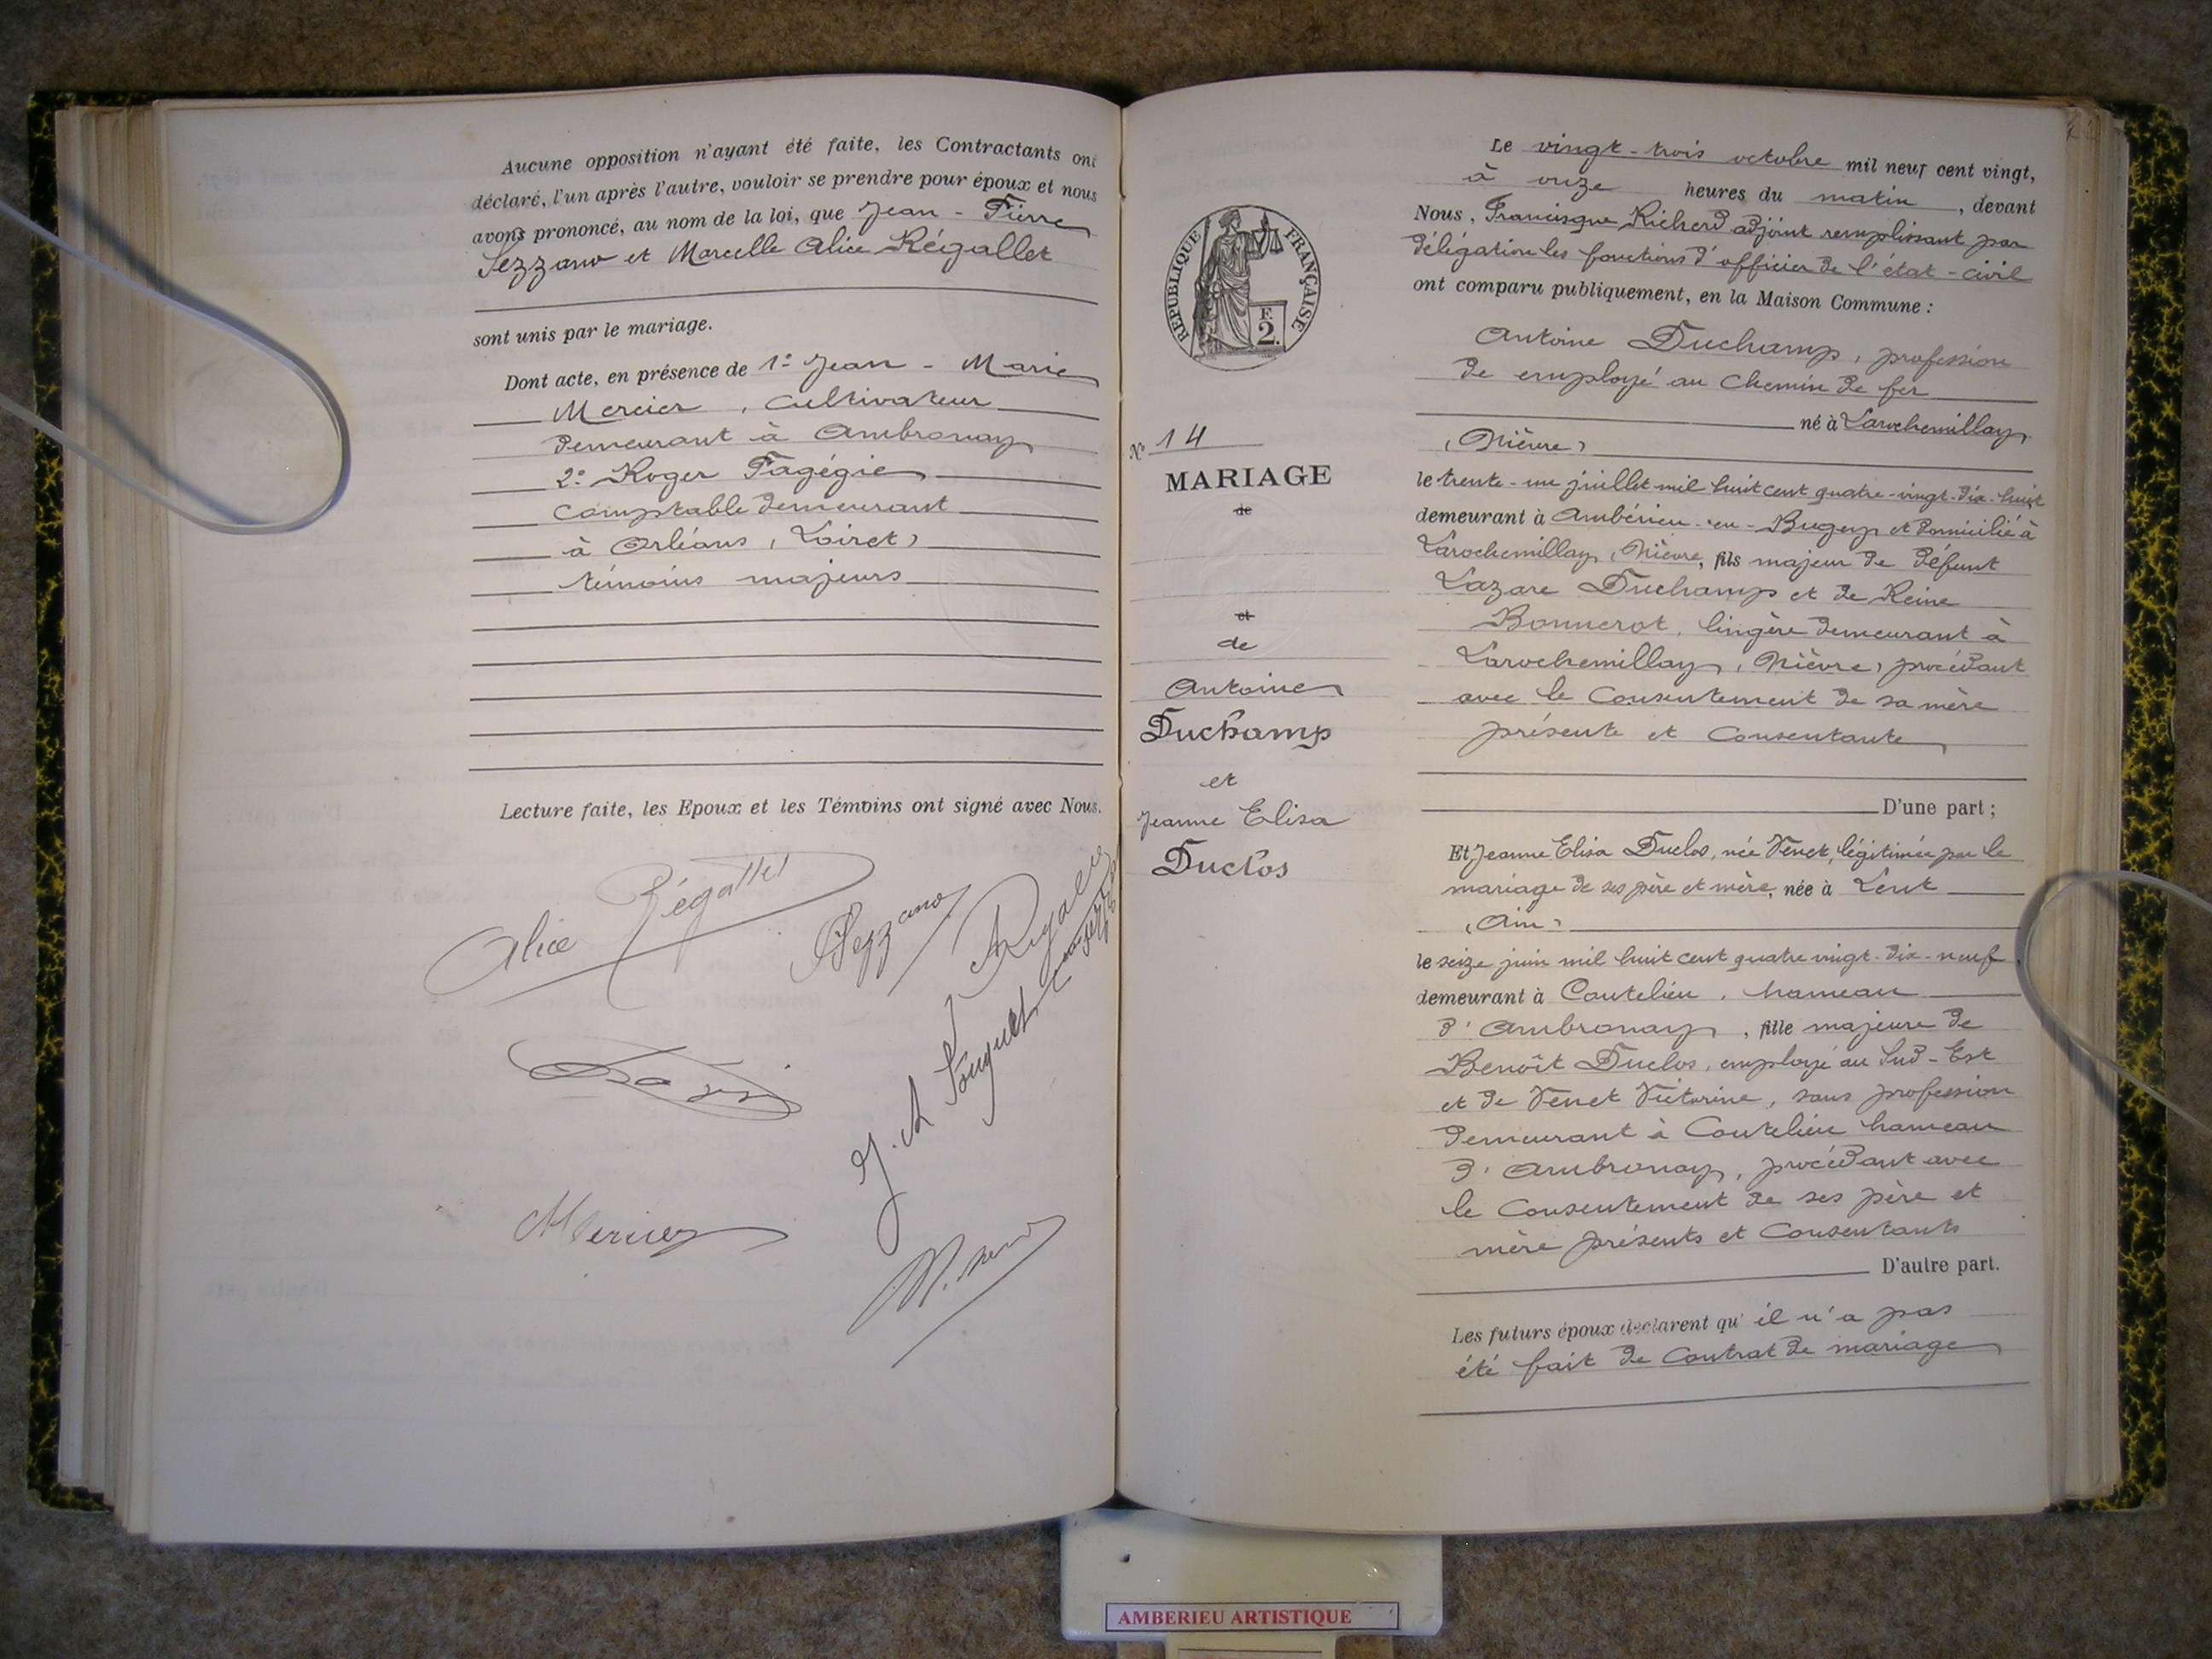 Aucune opposition n'ayant été faite, les Contractants ont
déclaré, l'un après l'autre, vouloir se prendre pour époux et nous
avons prononcé, au nom de la loi, que Jean - Pierre
Sezzano et Marcelle Alice Régallet
sont unis par le mariage.
Dont acte, en présence de 1° Jean - Marie
Mercier, cultivateur
demeurant à Ambronay
2° Roger Fagégie
comptable demeurant
à Orléans (Loiret)
témoins majeurs
Lecture faite, les Epoux et les Témoins ont signé avec Nous.
Alice Régallet
Sezzano
Mercier
RÉPUBLIQUE FRANÇAISE
F.
2.
N° 14
MARIAGE
de
et
de
Antoine
Duchamp
et
Jeanne Elisa
Duclos
Le vingt-trois octobre mil neuf cent vingt,
à onze heures du matin, devant
Nous, Francisque Richerd adjoint remplissant par
délégation les fonctions d'officier de l'état-civil
ont comparu publiquement, en la Maison Commune :
Antoine Duchamp, profession
de employé au chemin de fer
né à Larochemillay
(Nièvre)
le trente-un juillet mil huit cent quatre-vingt-dix-huit
demeurant à Ambérieu-en-Bugey et domicilié à
Larochemillay (Nièvre, fils majeur de défunt
Lazare Duchamp et de Reine
Bonnerot, lingère demeurant à
Larochemillay (Nièvre) procédant
avec le consentement de sa mère
présente et consentante
D'une part ;
Et Jeanne Elisa Duclos, née Venet, légitimée par le
mariage de ses père et mère, née à Lent
(Ain)
le seize juin mil huit cent quatre vingt-dix-neuf
demeurant à Coutelieu, hameau
d'Ambronay, fille majeure de
Benoît Duclos, employé au Sud-Est
et de Venet Victorine, sans profession
demeurant à Coutelieu hameau
d'Ambronay, procédant avec
le consentement de ses père et
mère présents et consentants
D'autre part.
Les futurs époux déclarent qu'il n'a pas
été fait de contrat de mariage
AMBERIEU ARTISTIQUE